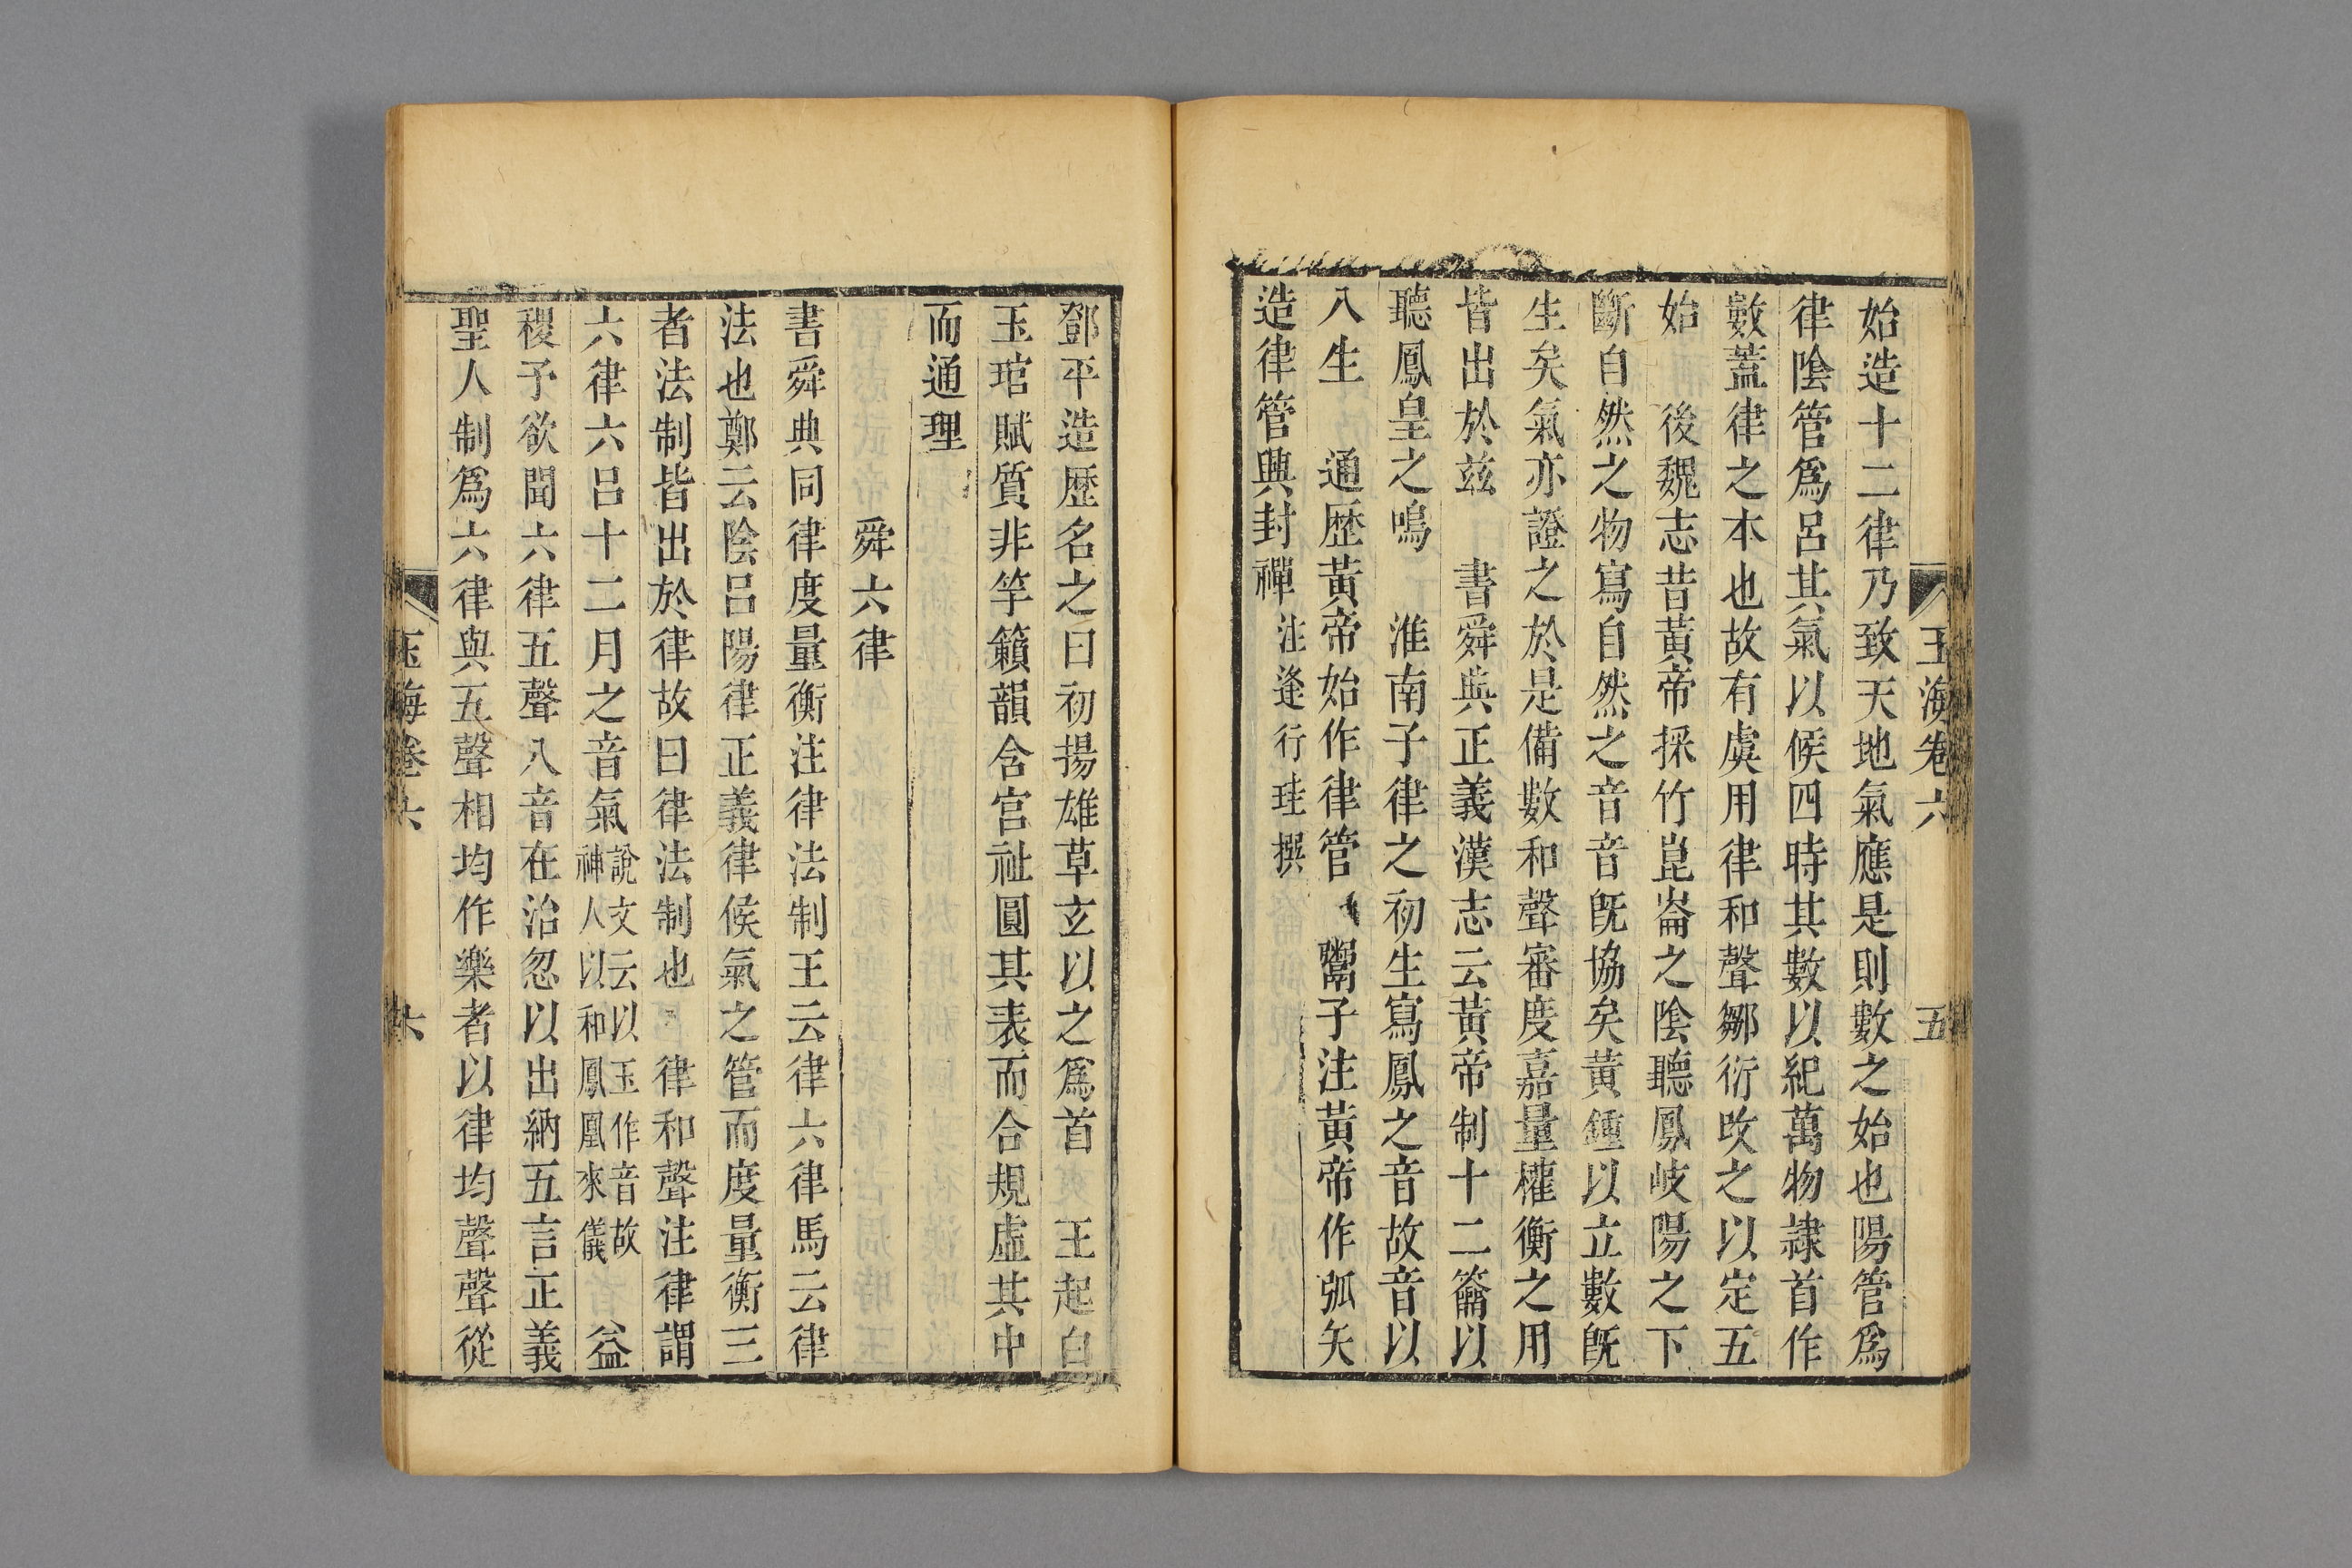 玉海卷六 五
始造十二律乃致天地氣應是則數之始也陽管爲
律陰管爲呂其氣以候四時其數以紀萬物隷首作
數蓋律之本也故有虞用律和聲鄒衍改之以定五
始 後魏志昔黃帝採竹崑崙之陰聽鳳岐陽之下
斷自然之物寫自然之音音旣協矣黃鍾以立數旣
生矣氣亦證之於是備數和聲審度嘉量權衡之用
皆出於兹 書舜典正義漢志云黃帝制十二籥以
聽鳳皇之鳴 淮南子律之初生寫鳳之音故音以
八生 通歷黃帝始作律管 鬻子注黃帝作弧矢
造律管興封禪 注逢行珪撰
鄧平造歷名之曰初揚雄草玄以之爲首 王起白
玉琯賦質非竽籟韻含宮祉圓其表而合規虛其中
而通理
舜六律
書舜典同律度量衡注律法制王云律六律馬云律
法也鄭云陰呂陽律正義律候氣之管而度量衡三
者法制皆出於律故曰律法制也 律和聲注律謂
六律六呂十二月之音氣 說文云以玉作音故神人以和鳳凰來儀 益
稷予欲聞六律五聲八音在治忽以出納五言正義
聖人制爲六律與五聲相均作樂者以律均聲聲從
玉海卷六 六